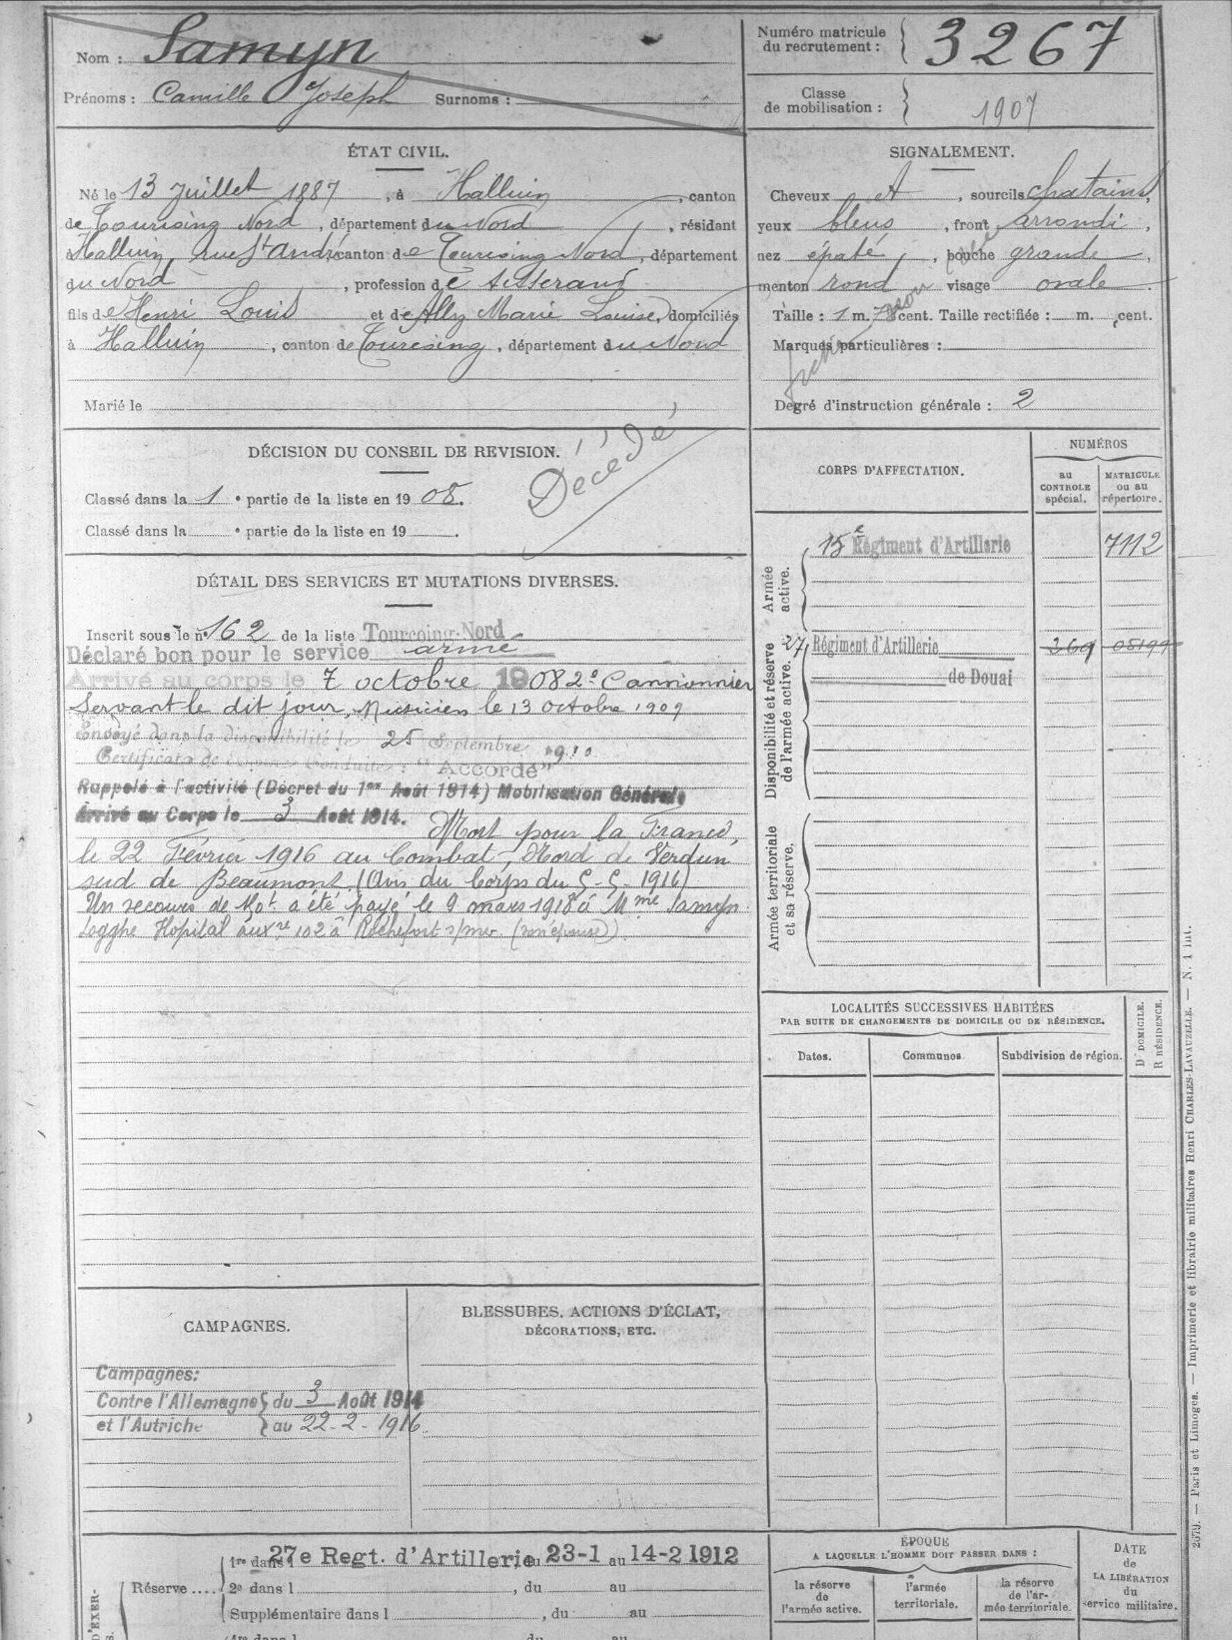 Nom : Samyn
Prénoms : Camille Joseph Surnoms :
Numéro matricule du recrutement : 3267
Classe de mobilisation : 1907
ÉTAT CIVIL.
Né le 13 Juillet 1887, à Halluin, canton
de Tourcoing Nord, département du Nord, résidant
à Halluin, rue St André canton de Tourcoing Nord, département
du Nord, profession de tisserand
fils de Henri Louis et de Ally Marie Louise, domiciliés
à Halluin, canton de Tourcoing, département du Nord
Marié le
SIGNALEMENT.
Cheveux et, sourcils chatains,
yeux bleus, front arrondi,
nez épaté, bouche grande,
menton rond visage ovale.
Taille : 1 m. cent. Taille rectifiée : m. cent.
Marques particulières :
Degré d'instruction générale : 2
DÉCISION DU CONSEIL DE REVISION.
Classé dans la 1e partie de la liste en 1908.
Classé dans la e partie de la liste en 19 .
Décédé
DÉTAIL DES SERVICES ET MUTATIONS DIVERSES.
Inscrit sous le n° 162 de la liste Tourcoing-Nord
Déclaré bon pour le service armé
Arrivé au corps le 7 octobre 1908 2e Cannonnier
Servant le dit jour, Musicien le 13 octobre 1909
Envoyé dans la disponibilité le 25 Septembre 1910
Certificat de Bonne Conduite : "Accordé"
Rappelé à l'activité (Décret du 1er Août 1914) Mobilisation Générale
Arrivé au Corps le 3 Août 1914. Mort pour la France,
le 22 Février 1916 au Combat, Nord de Verdun,
sud de Beaumont. (Avis du Corps du 5-5-1916)
Un secours de 140f a été payé le 9 mars 1918 à Mme Samyn
Logghe Hopital auxre 102 à Rochefort s/mer. (son épouse)
CORPS D'AFFECTATION.
NUMÉROS
au CONTROLE spécial.
MATRICULE ou au répertoire.
Armée active.
15e Régiment d'Artillerie 7112
Disponibilité et réserve de l'armée active.
27 Régiment d'Artillerie 369 08199
de Douai
Armée territoriale et sa réserve.
LOCALITÉS SUCCESSIVES HABITÉES
PAR SUITE DE CHANGEMENTS DE DOMICILE OU DE RÉSIDENCE.
Dates. Communes. Subdivision de région.
D DOMICILE.
R RÉSIDENCE.
CAMPAGNES.
Campagnes:
Contre l'Allemagne du 3 Août 1914
et l'Autriche au 22-2-1916.
BLESSURES, ACTIONS D'ÉCLAT,
DÉCORATIONS, ETC.
D'EXER-
Réserve ....
1re dans l 27e Regt. d'Artillerie du 23-1 au 14-2 1912
2e dans l , du au
Supplémentaire dans l , du au
1re dans l du au
ÉPOQUE
A LAQUELLE L'HOMME DOIT PASSER DANS :
la réserve de l'armée active.
l'armée territoriale.
la réserve de l'armée territoriale.
DATE
de
LA LIBÉRATION
du
service militaire.
2679. — Paris et Limoges. — Imprimerie et librairie militaires Henri CHARLES-LAVAUZELLE. — N. 1 int.